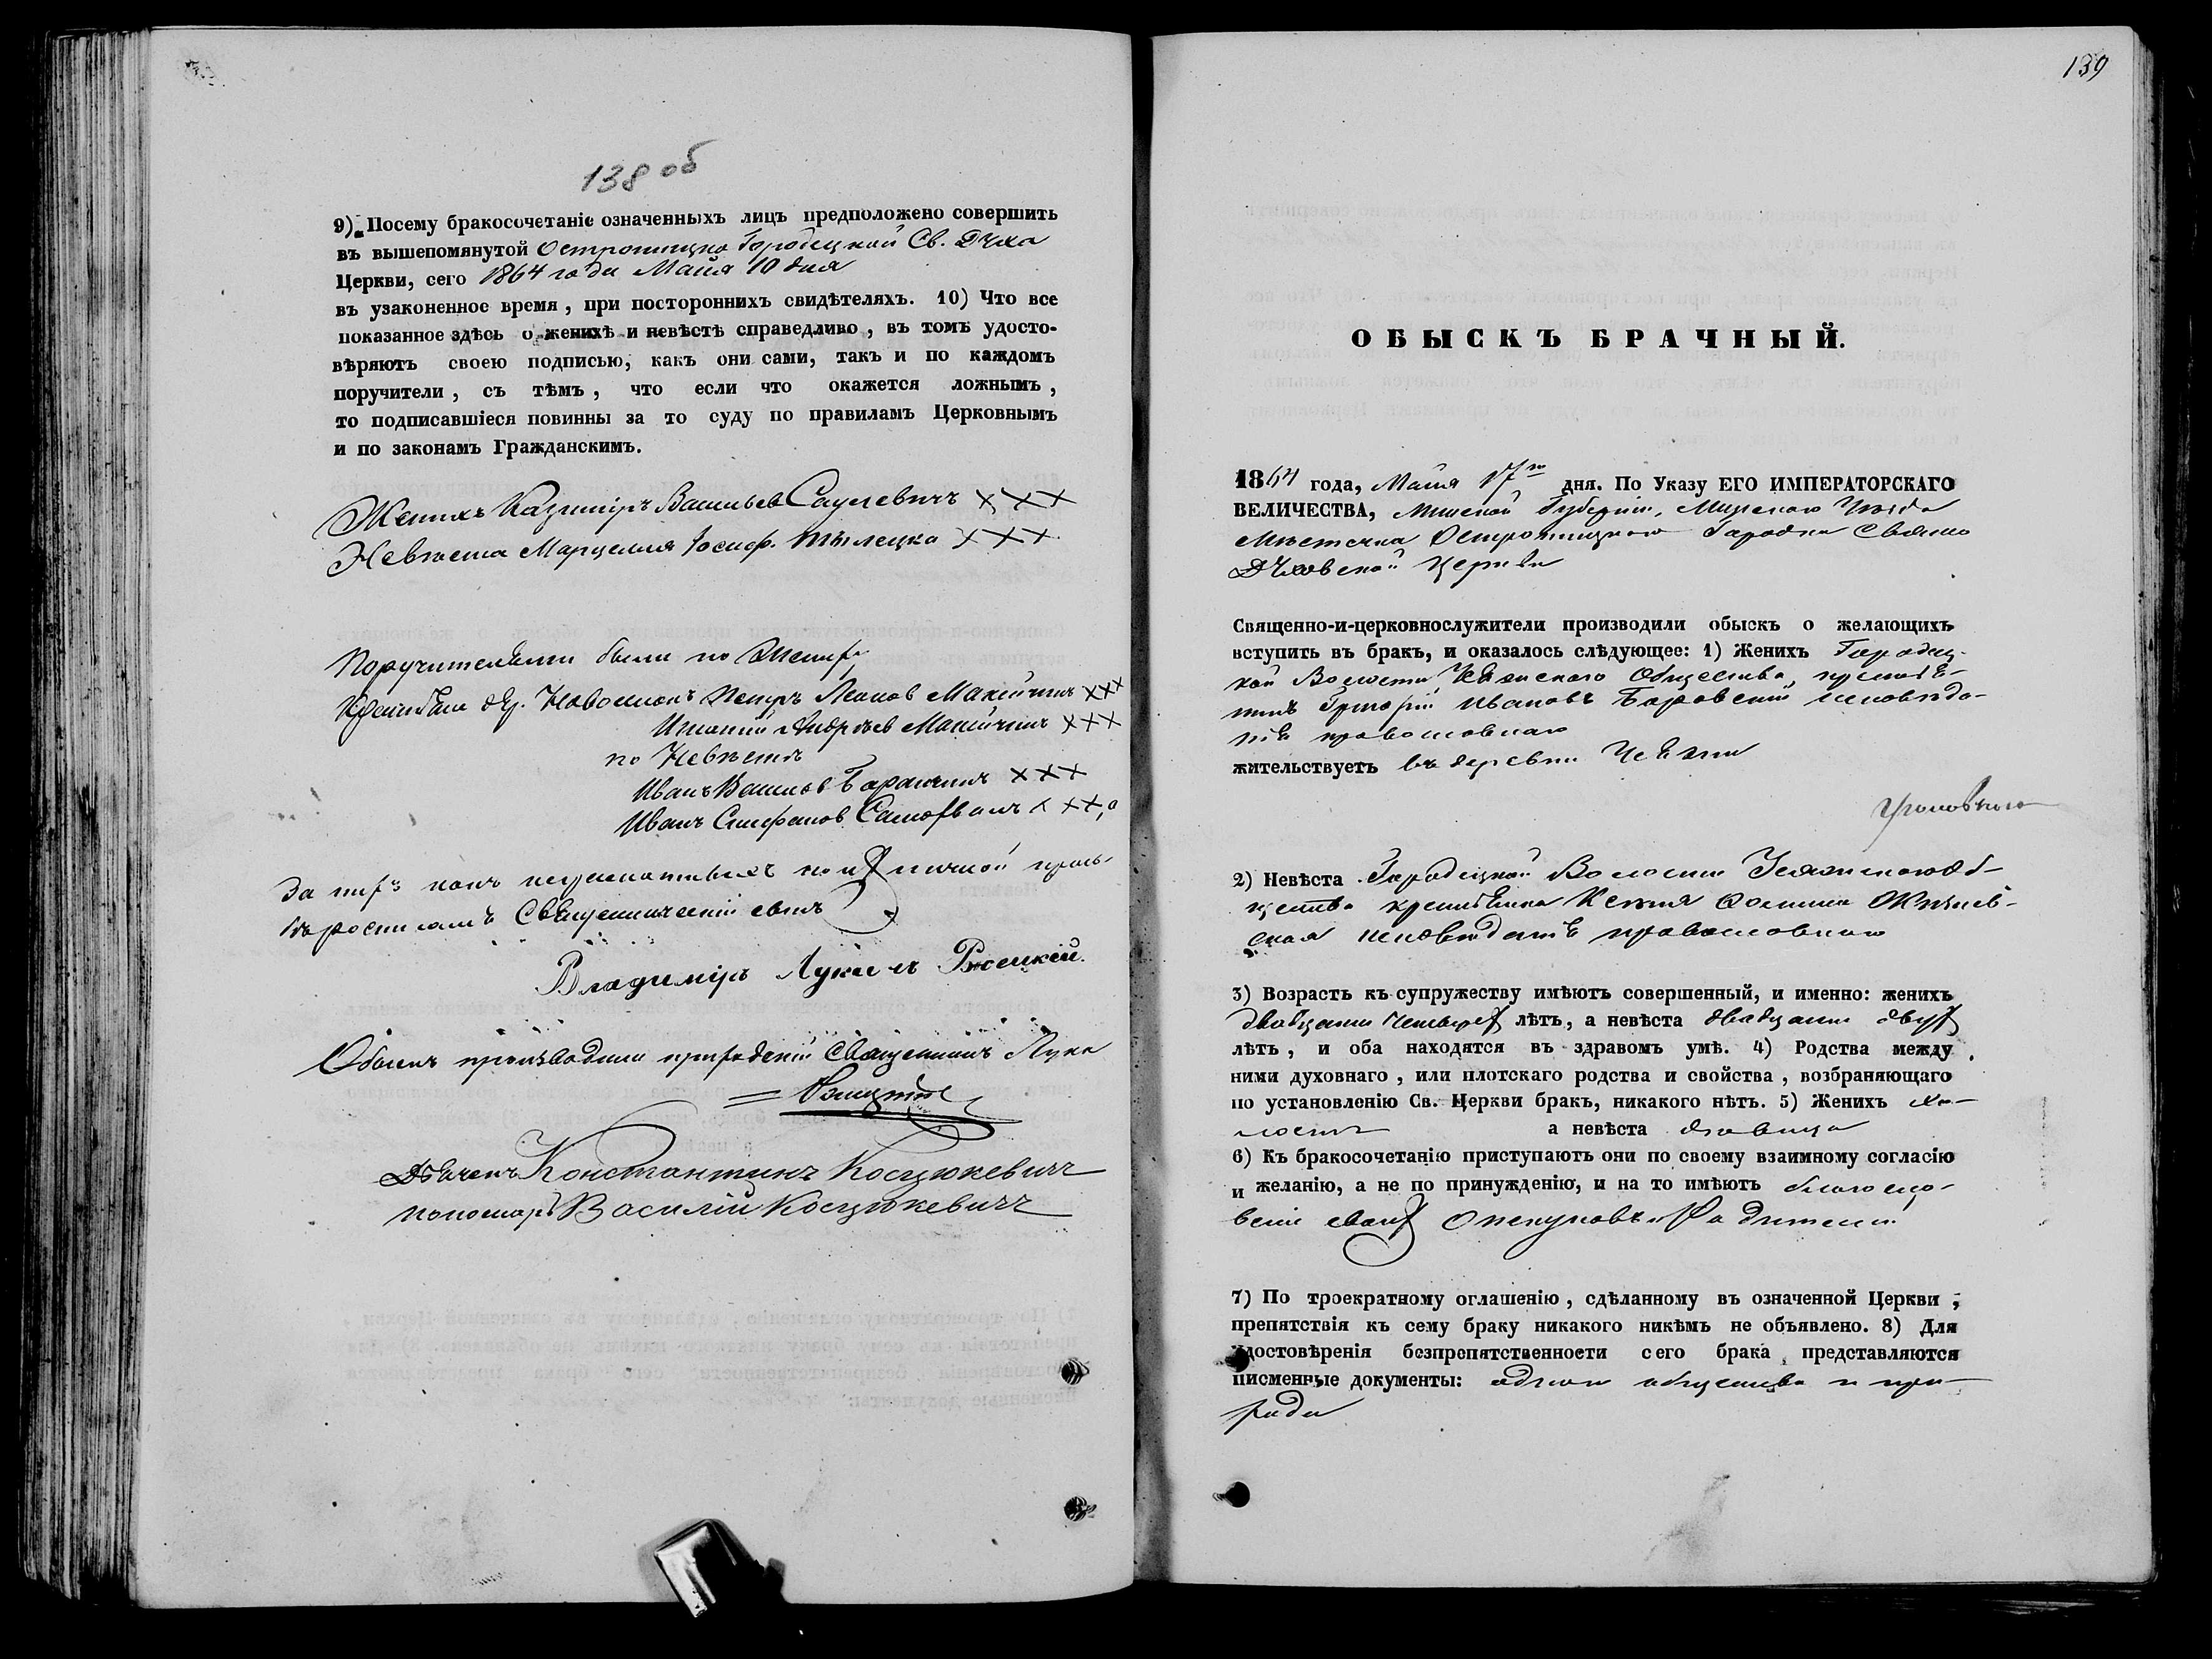 138 об
9) Посему бракосочетаніе означенныхъ лицъ предположено совершить
въ вышепомянутой Острошицко Городецкой Св. Духа
Церкви, сего 1864 года Маія 10 дня
въ узаконенное время, при постороннихъ свидѣтеляхъ. 10) Что все
показанное здѣсь о женихѣ и невѣстѣ справедливо, въ томъ удосто-
вѣряютъ своею подписью, какъ они сами, такъ и по каждомъ
поручители, съ тѣмъ, что если что окажется ложнымъ,
то подписавшіеся повинны за то суду по правиламъ Церковнымъ
и по законамъ Гражданскимъ.
Женихъ Казиміръ Васильевъ XXX
Невѣста Марцелля Іосиф. XXX
Поручителями были по Женихѣ
Крестьяне дер. Петръ XXX
Андреевъ XXX
по Невѣстѣ
Иванъ XXX
Иванъ Стефановъ XXX
За ихъ какъ неграмотныхъ по ихъ личной прозь-
бѣ росписался Священническій сынъ
Владиміръ Лукинъ
Обыскъ производили приходскій Священникъ Лука
Дьячекъ Константинъ Косцюкевичъ
пономарь Василій Косцюкевичъ
139
ОБЫСКЪ БРАЧНЫЙ.
1864 года, Маія 17го дня. По Указу ЕГО ИМПЕРАТОРСКАГО
ВЕЛИЧЕСТВА, Минской Губерніи, Минскаго Уѣзда
Мѣстечка Острошицкаго Городка Свято
Духовской Церкви
Священно-и-церковнослужители производили обыскъ о желающихъ
вступить въ бракъ, и оказалось слѣдующее: 1) Женихъ Городец-
кой Волости Общества, крестья-
нинъ Григорій Ивановъ Боровскій исповѣда-
нія православнаго
жительствуетъ въ деревни
2) Невѣста Городецкой Волости Об-
щества крестьянка Ксенія
исповѣданія православнаго
3) Возрастъ къ супружеству имѣютъ совершенный, и именно: женихъ
двадцати четырехъ лѣтъ, а невѣста двадцати двухъ
лѣтъ, и оба находятся въ здравомъ умѣ. 4) Родства между
ними духовнаго, или плотскаго родства и свойства, возбраняющаго
по установленію Св. Церкви бракъ, никакого нѣтъ. 5) Женихъ хо-
лостъ а невѣста дѣвица
6) Къ бракосочетанію приступаютъ они по своему взаимному согласію
и желанію, а не по принужденію, и на то имѣютъ благосло-
веніе своихъ опекуновъ и Родителей
7) По троекратному оглашенію, сдѣланному въ означенной Церкви,
препятствія къ сему браку никакого никѣмъ не объявлено. 8) Для
удостовѣренія безпрепятственности сего брака представляются
писменные документы: